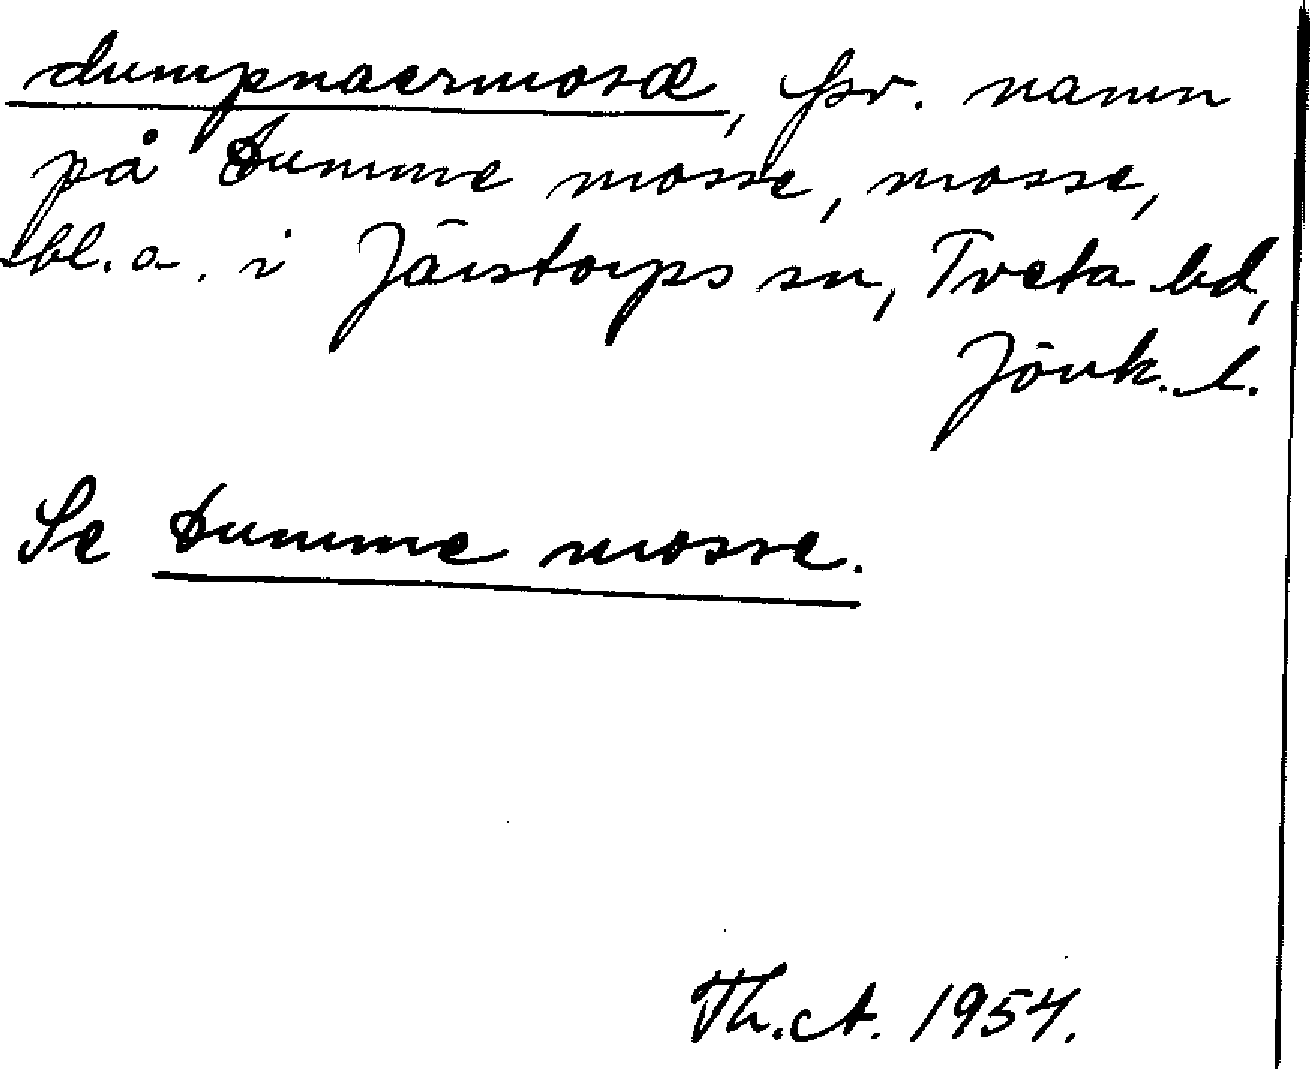 dumpnaermosæ, fsv. namn
på Dumme mosse, mosse,
bl. a. i Järstorps sn, Tveta hd,
Jönk. l.
Se Dumme mosse.
Th. A. 1954.